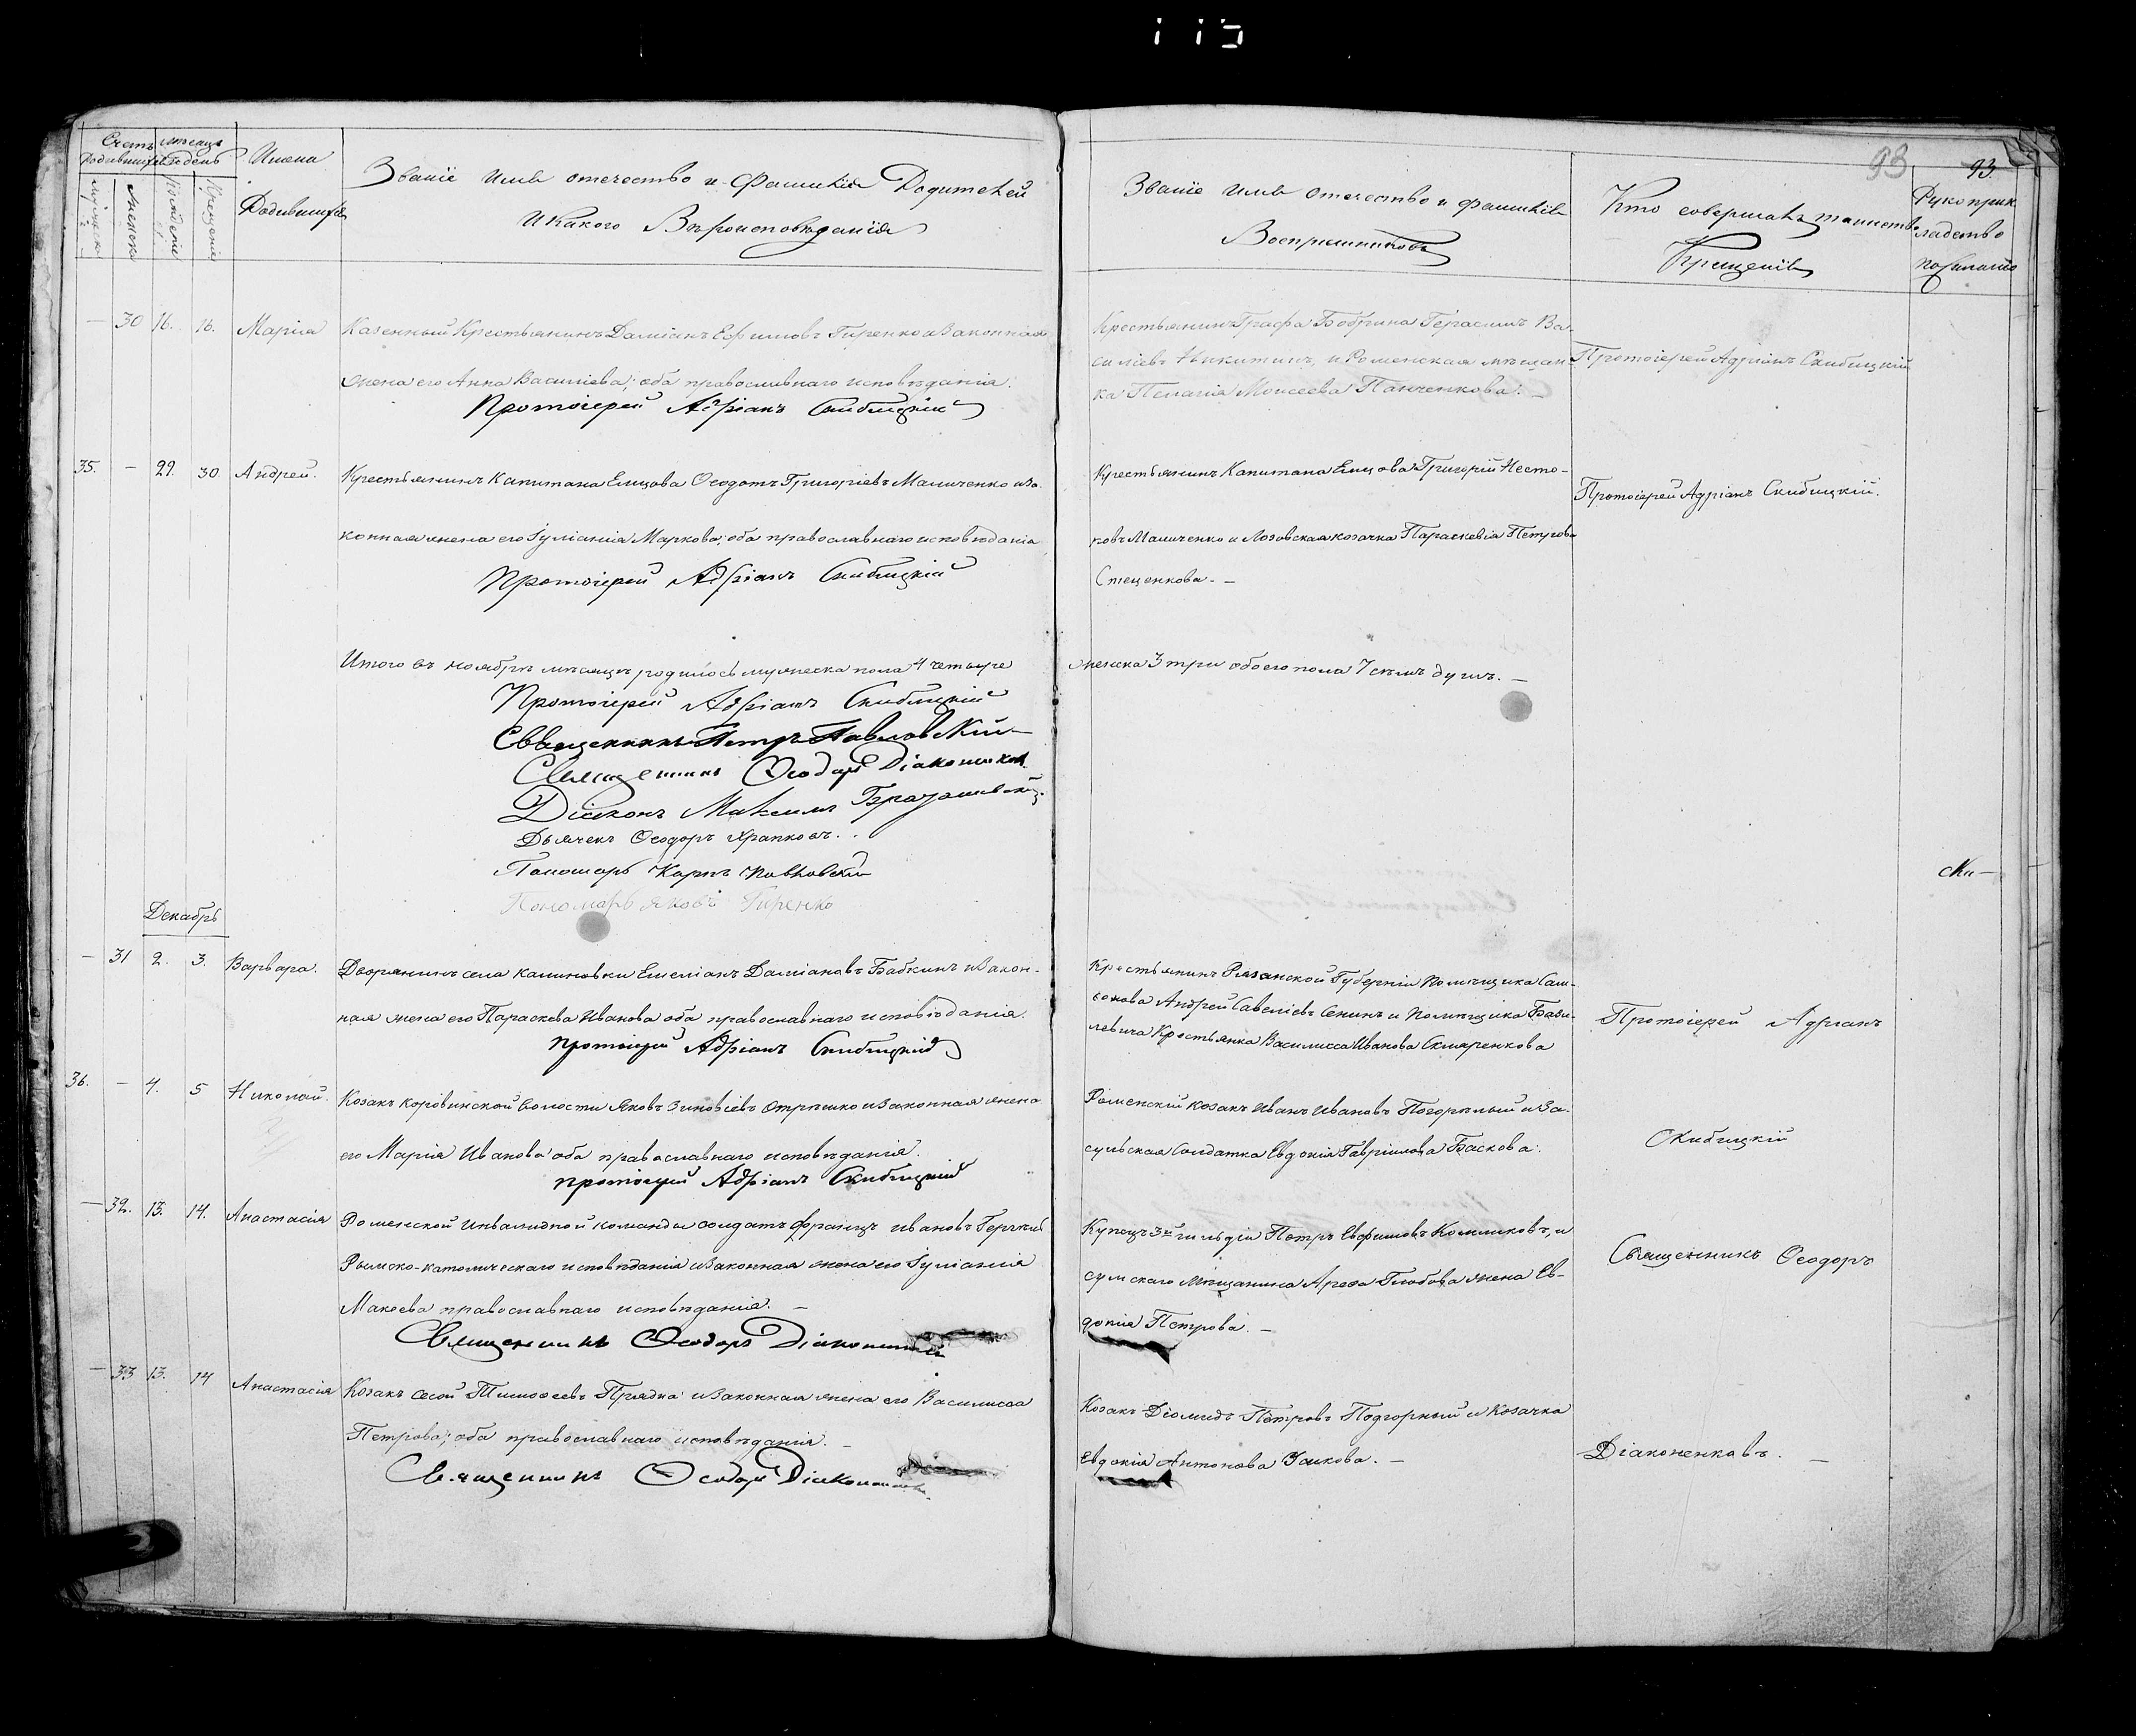 115
93
93.
Счетъ родившихся
мѣсяцъ и день
Имена Родившихся
Званіе имя отечество и фамилія Родителей
и какого Вѣроисповѣданія
Званіе имя отечество и фамилія
Воспріемниковъ
Кто совершалъ таинство
Крещенія
Рукоприк
ладство
по желанію
мужеска
женска
рожденія
Крещенія
— 30 16. 16. Марія
Казенный Крестьянинъ Даміанъ Ефимовъ Гиренко и законная
жена его Анна Василіева; оба православнаго исповѣданія.
Протоіерей Адріанъ Скибицкій
Крестьянинъ Графа Бобрина Герасимъ Ва-
силіевъ Никитинъ, и Роменская мѣщан-
ка Пелагія Моисеева Панченкова. —
Протоіерей Адріанъ Скибицкій
35. — 29. 30 Андрей.
Крестьянинъ Капитана Елицова Ѳеодотъ Григоріевъ Маличенко и за-
конная жена его Іуліанія Маркова; оба православнаго исповѣданія
Протоіерей Адріанъ Скибицкій
Крестьянинъ Капитана Елицова Григорій Несто-
ровъ Маличенко и Лозовская козачка Параскевія Петрова
Стеценкова. —
Протоіерей Адріанъ Скибицкій.
Итого въ ноябрѣ мѣсяцѣ родилось мужеска пола 4 четыре
женска 3 три обоего пола 7 семь душъ. —
Протоіерей Адріанъ Скибицкій
Священникъ Петръ Павловскій
Священникъ Ѳеодоръ Діаконенковъ
Діаконъ Максимъ
Дьячекъ Ѳеодоръ Храпковъ.
Пономарь Карпъ
Пономарь Яковъ Гиренко
Декабрь
— 31 2. 3. Варвара.
Дворянинъ села Калиновки Емеліанъ Даміановъ Бабкинъ и закон-
ная жена его Параскева Иванова оба православнаго исповѣданія.
Протоіерей Адріанъ Скибицкій
Крестьянинъ Рязанской Губерніи Помѣщика Сам-
сонова Андрей Савеліевъ Сенинъ и Помѣщика Бази-
левича Крестьянка Василисса Иванова Скляренкова
Протоіерей Адріанъ
36. — 4. 5 Николай.
Козакъ Коровинской волости Яковъ Зиновіевъ Отрѣшко и законная жена
его Марія Иванова оба православнаго исповѣданія.
Протоіерей Адріанъ Скибицкій
Роменскій козакъ Иванъ Ивановъ Погорѣлый и За-
сульская Солдатка Евдокія Гавріилова Баскова.
Скибицкій
— 32. 13. 14. Анастасія
Роменской Инвалидной команды солдатъ Францъ Ивановъ
Римско-католическаго исповѣданія и законная жена его Іуліанія
Макѣева православнаго исповѣданія. —
Священникъ Ѳеодоръ Діаконенковъ
Купецъ 3й гильдіи Петръ Евфимовъ Комликовъ, и
сумскаго мѣщанина Арефа Глобова жена Ев-
докія Петрова. —
Священникъ Ѳеодоръ
— 33 13. 14 Анастасія
Козакъ Сисой Тимоѳеевъ Прядка и законная жена его Василисса
Петрова; оба православнаго исповѣданія. —
Священникъ Ѳеодоръ Діаконенковъ
Козакъ Діомидъ Петровъ Подгорный и Козачка
Евдокія Антонова Заикова. —
Діаконенковъ. —